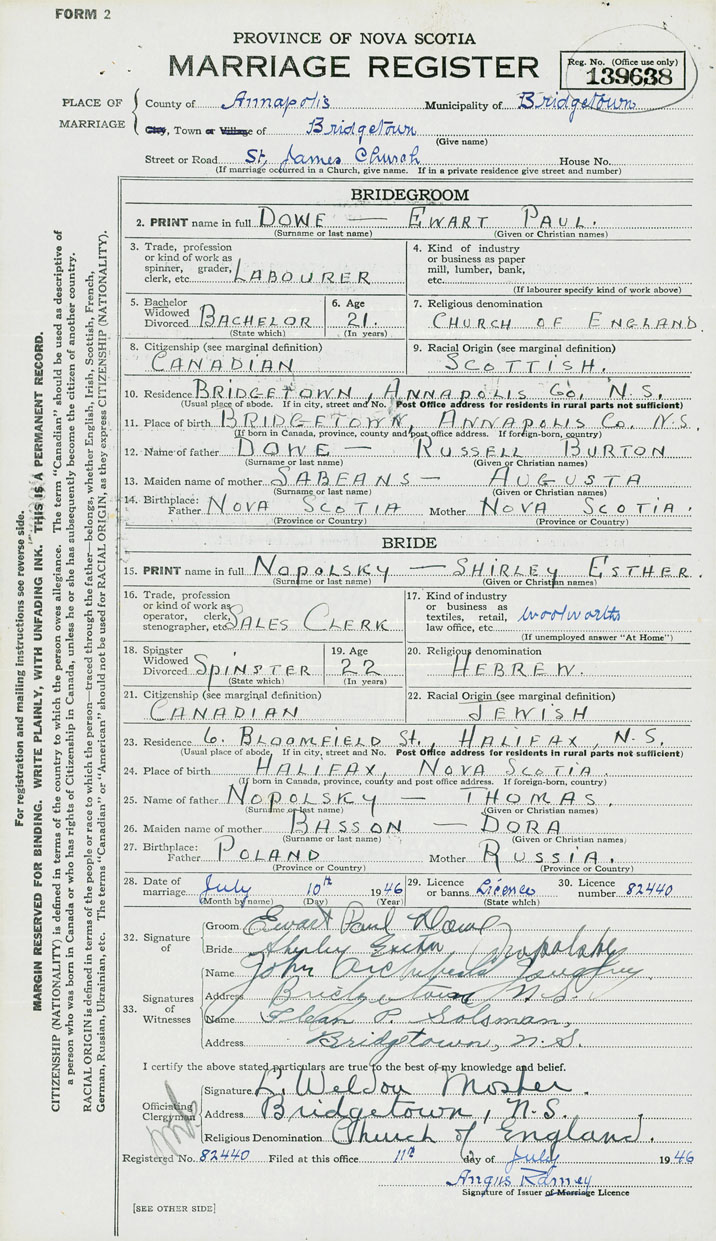 FORM 2
PROVINCE OF NOVA SCOTIA
MARRIAGE REGISTER
Reg. No. (Office use only)
139638
PLACE OF MARRIAGE
County of Annapolis Municipality of Bridgetown
City, Town or Village of Bridgetown
(Give name)
Street or Road St. James Church House No.
(If marriage occurred in a Church, give name. If in a private residence give street and number)
BRIDEGROOM
2. PRINT name in full DOWE — EWART PAUL.
(Surname or last name) (Given or Christian names)
3. Trade, profession or kind of work as spinner, grader, clerk, etc. LABOURER
4. Kind of industry or business as paper mill, lumber, bank, etc.
(If labourer specify kind of work above)
5. Bachelor Widowed Divorced BACHELOR
(State which)
6. Age 21.
(In years)
7. Religious denomination
CHURCH OF ENGLAND.
8. Citizenship (see marginal definition)
CANADIAN
9. Racial Origin (see marginal definition)
SCOTTISH.
10. Residence BRIDGETOWN, ANNAPOLIS CO. N.S.
(Usual place of abode. If in city, street and No. Post Office address for residents in rural parts not sufficient)
11. Place of birth BRIDGETOWN, ANNAPOLIS CO. N.S.
(If born in Canada, province, county and post office address. If foreign-born, country)
12. Name of father DOWE — RUSSELL BURTON
(Surname or last name) (Given or Christian names)
13. Maiden name of mother SABEANS — AUGUSTA
(Surname or last name) (Given or Christian names)
14. Birthplace: Father NOVA SCOTIA Mother NOVA SCOTIA.
(Province or Country) (Province or Country)
BRIDE
15. PRINT name in full NOPOLSKY — SHIRLEY ESTHER.
(Surname or last name) (Given or Christian names)
16. Trade, profession or kind of work as operator, clerk, stenographer, etc. SALES CLERK
17. Kind of industry or business as textiles, retail, law office, etc. Woolworths
(If unemployed answer "At Home")
18. Spinster Widowed Divorced SPINSTER
(State which)
19. Age 22
(In years)
20. Religious denomination
HEBREW.
21. Citizenship (see marginal definition)
CANADIAN
22. Racial Origin (see marginal definition)
JEWISH
23. Residence 6. BLOOMFIELD ST., HALIFAX, N.S.
(Usual place of abode, If in city, street and No. Post Office address for residents in rural parts not sufficient)
24. Place of birth HALIFAX, NOVA SCOTIA.
(If born in Canada, province, county and post office address. If foreign-born, country)
25. Name of father NOPOLSKY — THOMAS.
(Surname or last name) (Given or Christian names)
26. Maiden name of mother BASSON — DORA
(Surname or last name) (Given or Christian names)
27. Birthplace: Father POLAND Mother RUSSIA.
(Province or Country) (Province or Country)
28. Date of marriage July 10th 1946
(Month by name) (Day) (Year)
29. Licence or banns Licence
(State which)
30. Licence number 82440
32. Signature of
Groom Ewart Paul Dowe
Bride Shirley Esther Nopolsky
33. Signatures of Witnesses
Name John Archibald
Address Bridgetown N.S.
Name P. Solsman,
Address Bridgetown, N.S.
I certify the above stated particulars are true to the best of my knowledge and belief.
Officiating Clergyman
Signature L. Weldon Mosher.
Address Bridgetown, N.S.
Religious Denomination Church of England.
Registered No. 82440 Filed at this office 11th day of July 1946
Angus Ramey
Signature of Issuer of Marriage Licence
[SEE OTHER SIDE]
For registration and mailing instructions see reverse side.
MARGIN RESERVED FOR BINDING. WRITE PLAINLY, WITH UNFADING INK. THIS IS A PERMANENT RECORD.
CITIZENSHIP (NATIONALITY) is defined in terms of the country to which the person owes allegiance. The term "Canadian" should be used as descriptive of
a person who was born in Canada or who has rights of Citizenship in Canada, unless he or she has subsequently become the citizen of another country.
RACIAL ORIGIN is defined in terms of the people or race to which the person—traced through the father—belongs, whether English, Irish, Scottish, French,
German, Russian, Ukrainian, etc. The terms "Canadian" or "American" should not be used for RACIAL ORIGIN, as they express CITIZENSHIP (NATIONALITY).